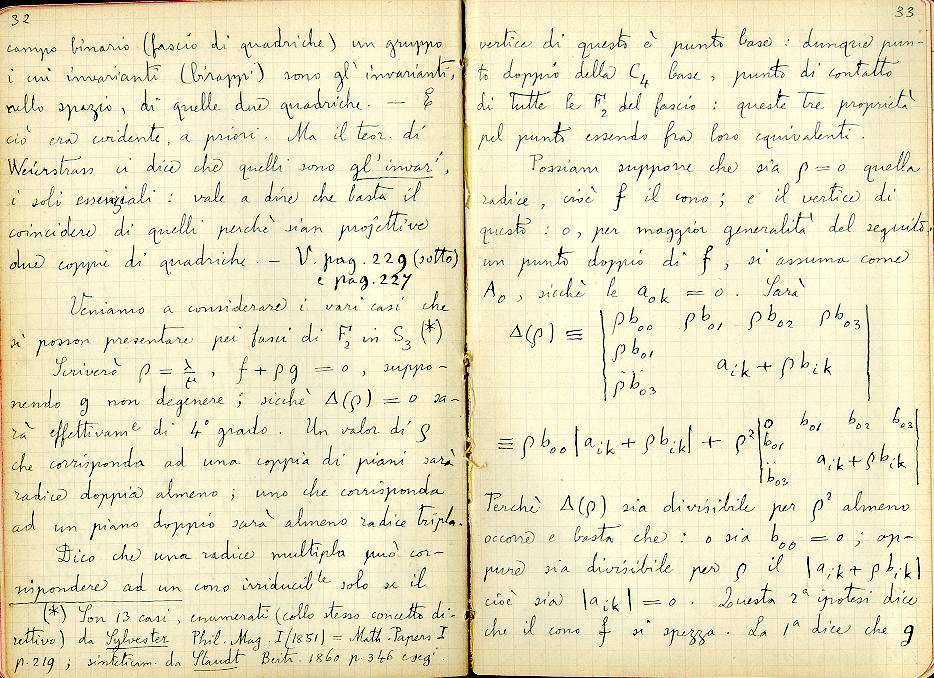 32
campo binario (fascio di quadriche) un gruppo
i cui invarianti (birapp.ⁱ) sono gl'invarianti,
nello spazio, di quelle due quadriche. — E
ciò era evidente, a priori. Ma il teor. di
Weierstrass ci dice che quelli sono gl'invar.ⁱ,
i soli essenziali : vale a dire che basta il
coincidere di quelli perchè sian projettive
due coppie di quadriche. — V. pag. 229 (sotto)
e pag. 227
Veniamo a considerare i vari casi che
si posson presentare pei fasci di F₂ in S₃ (*)
Scriverò ρ = λ/μ , f + ρg = 0 , suppo-
nendo g non degenere ; sicchè Δ(ρ) = 0 sa-
rà effettivamᵉ di 4° grado. Un valor di ρ
che corrisponda ad una coppia di piani sarà
radice doppia almeno ; uno che corrisponda
ad un piano doppio sarà almeno radice tripla.
Dico che una radice multipla può cor-
rispondere ad un cono irriducibˡᵉ solo se il
(*) Son 13 casi, enumerati (collo stesso concetto di-
rettivo) da Sylvester Phil. Mag. I (1851) = Math. Papers I
p. 219 ; sinteticam. da Staudt Beitr. 1860 p. 346 e seg.ⁱ
33
vertice di questo è punto base : dunque pun-
to doppio della C₄ base, punto di contatto
di tutte le F₂ del fascio : queste tre proprietà
pel punto essendo fra loro equivalenti.
Possiam supporre che sia ρ = 0 quella
radice, cioè f il cono ; e il vertice di
questo : o, per maggior generalità del seguito,
un punto doppio di f, si assuma come
A₀, sicchè le a₀ₖ = 0. Sarà
Δ(ρ) ≡ | ρb₀₀ ρb₀₁ ρb₀₂ ρb₀₃ |
| ρb₀₁ |
| .. aᵢₖ + ρbᵢₖ |
| ρb₀₃ |
≡ ρb₀₀ |aᵢₖ + ρbᵢₖ| + ρ² | 0 b₀₁ b₀₂ b₀₃ |
| b₀₁ |
| .. aᵢₖ + ρbᵢₖ |
| b₀₃ |
Perchè Δ(ρ) sia divisibile per ρ² almeno
occorre e basta che : o sia b₀₀ = 0 ; op-
pure sia divisibile per ρ il |aᵢₖ + ρbᵢₖ|
cioè sia |aᵢₖ| = 0. Questa 2ª ipotesi dice
che il cono f si spezza. La 1ª dice che g